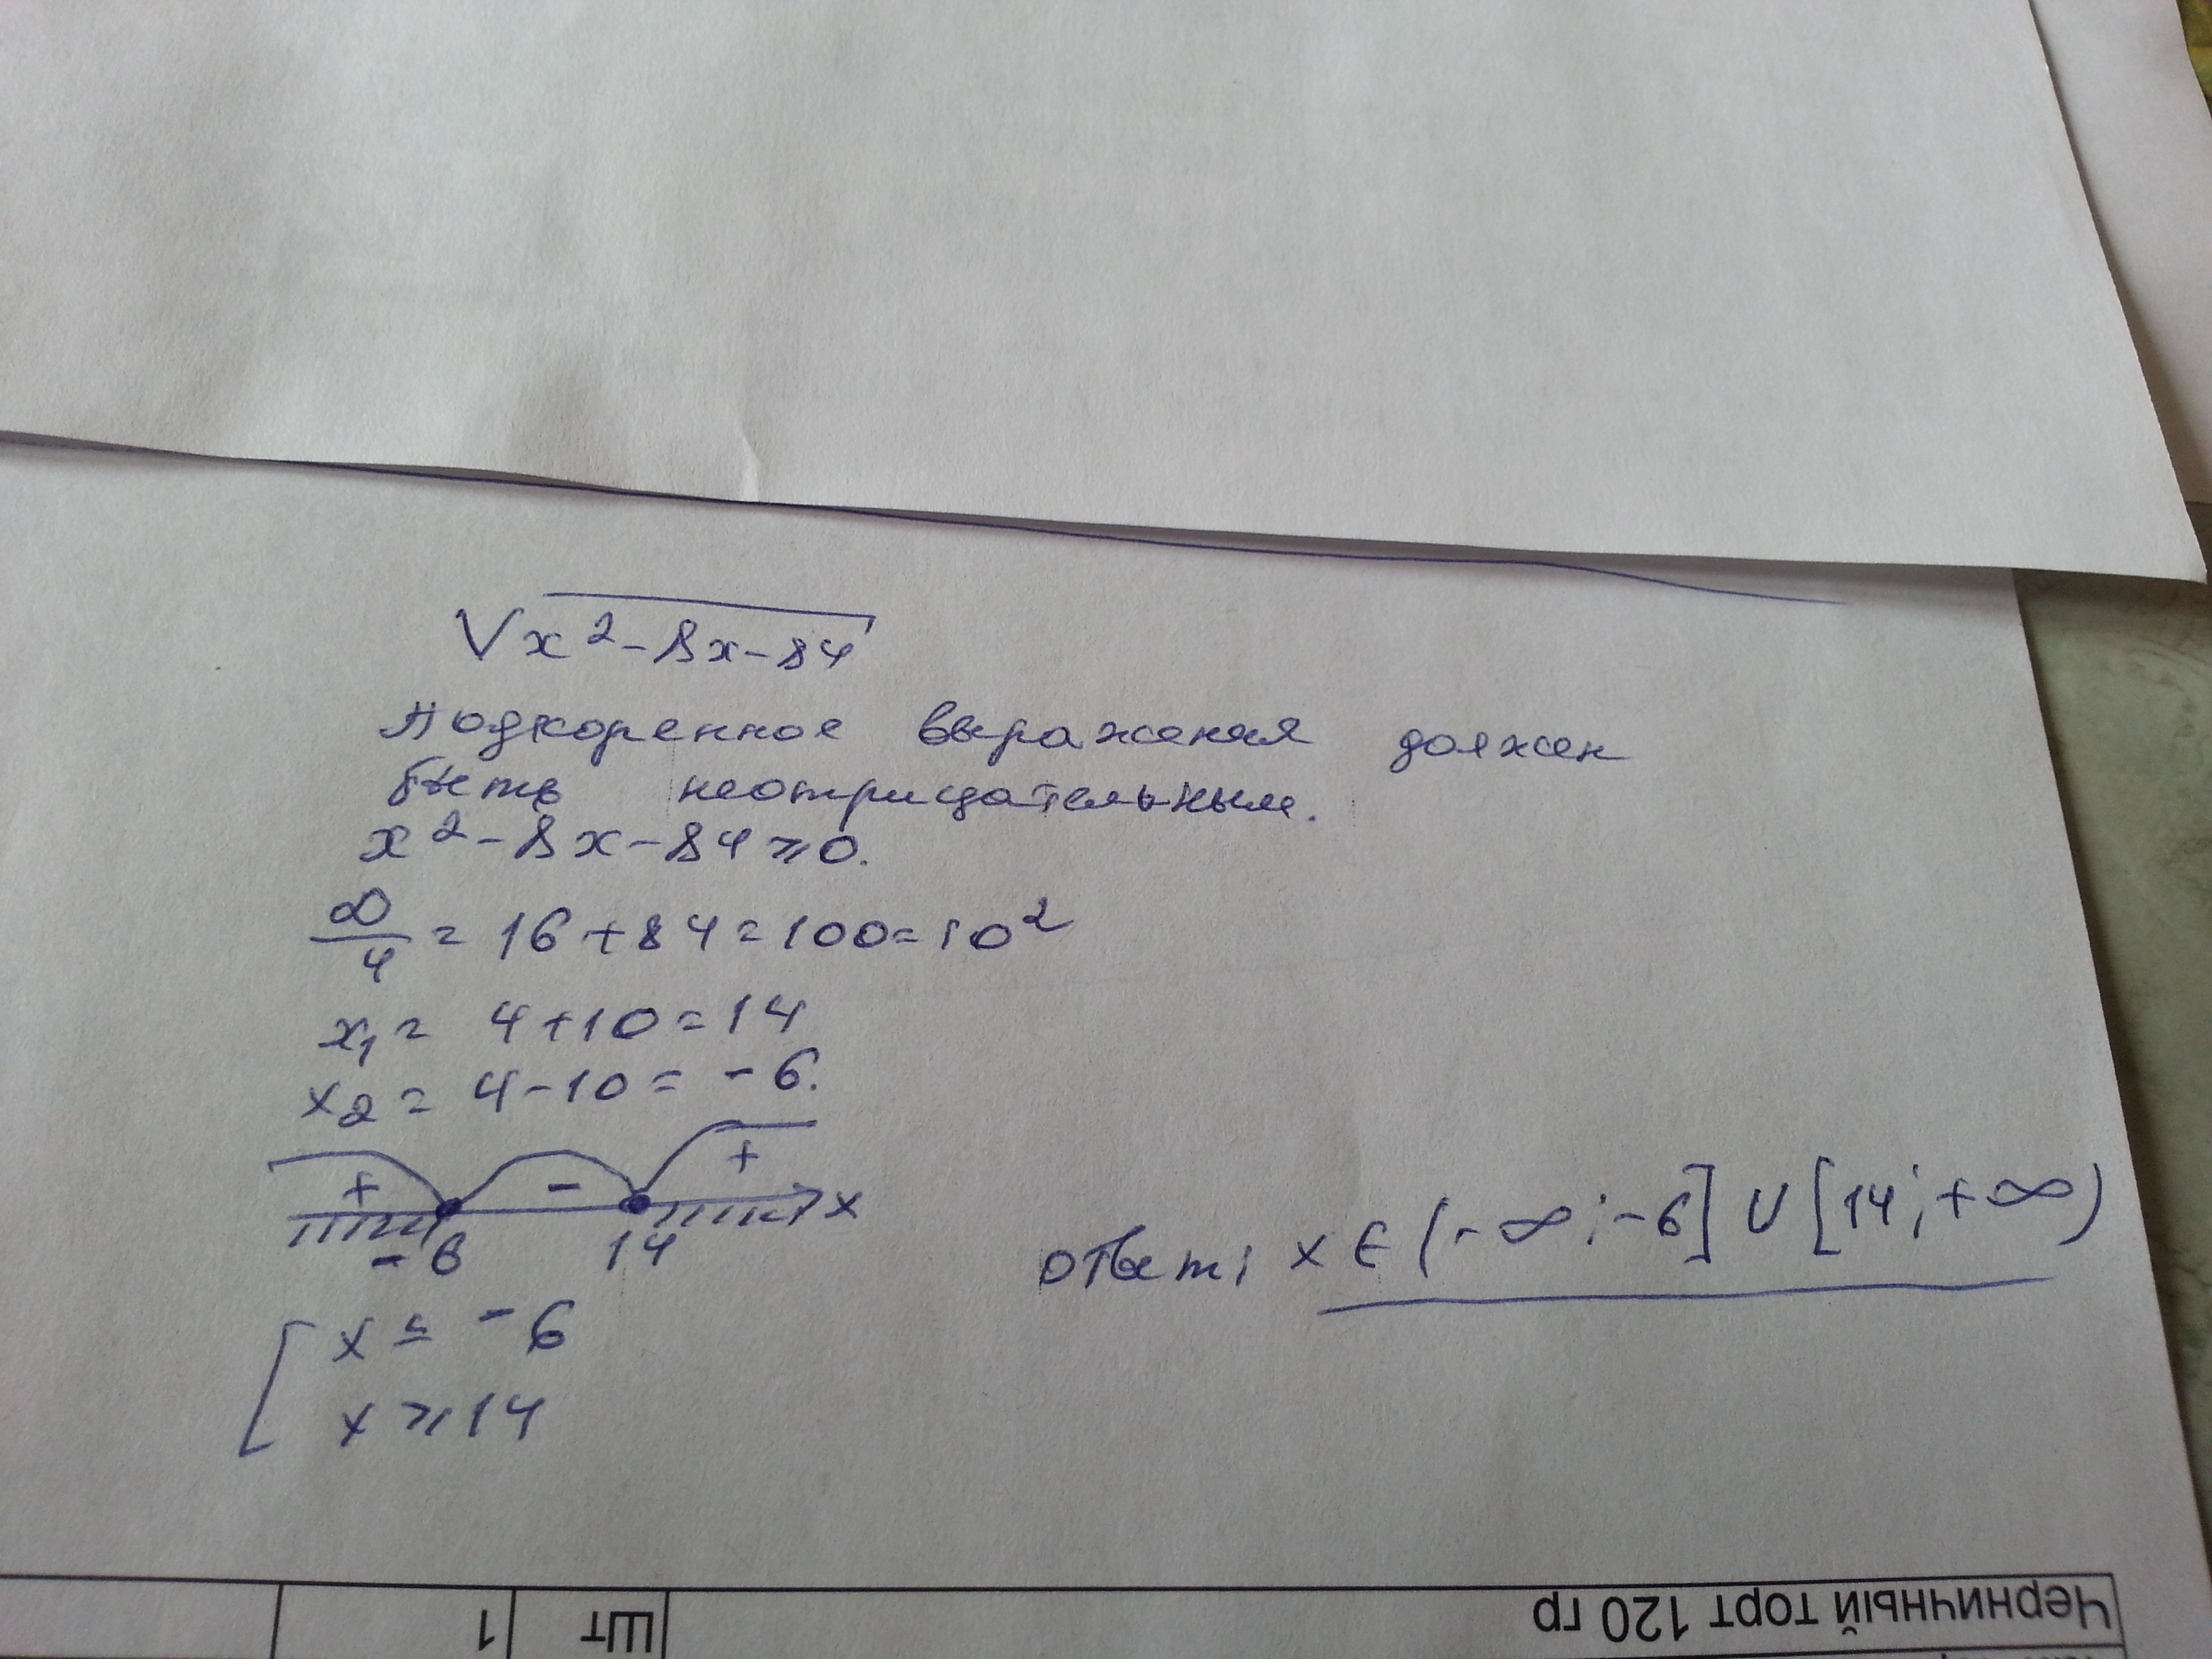 √x² - 8x - 84
Подкоренное выражения должен
быть неотрицательным.
x² - 8x - 84 ⩾ 0.
D/4 = 16 + 84 = 100 = 10²
x₁ = 4 + 10 = 14
x₂ = 4 - 10 = - 6.
+ - + x
- 6 14
[ x ≤ - 6
x ⩾ 14
ответ: x ∈ (- ∞; -6] ∪ [14; + ∞)
Черничный торт 120 гр шт 1